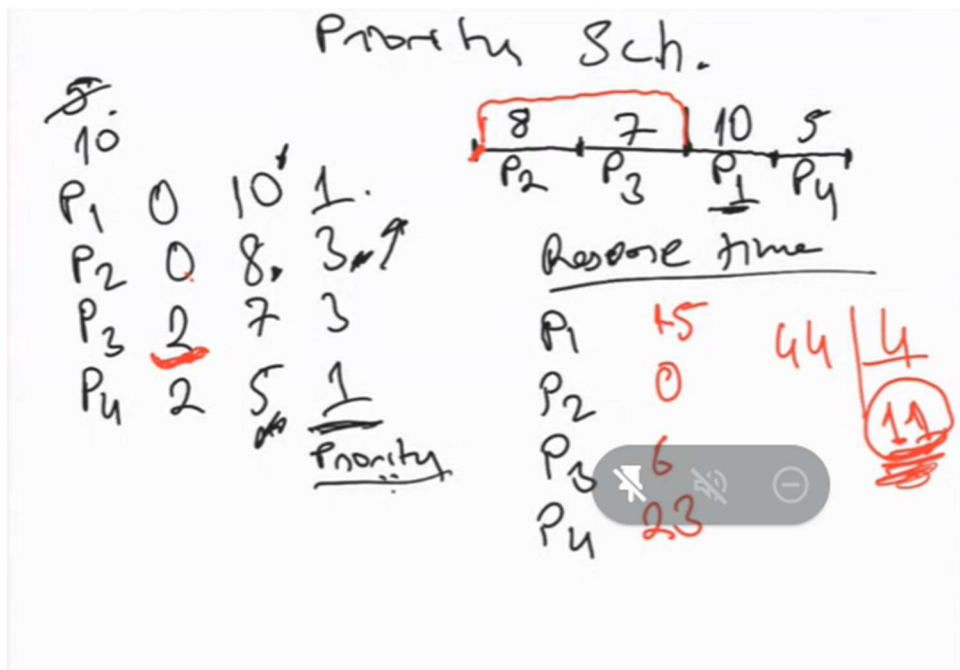 Priority Sch.
5.
10
P1 0 10 1.
P2 0 8. 3
P3 2 7 3
P4 2 5 1
Priority
8 7 10 5
P2 P3 P1 P4
Resposne time
P1 15
P2 0
P3 6
P4 23
44 4
11